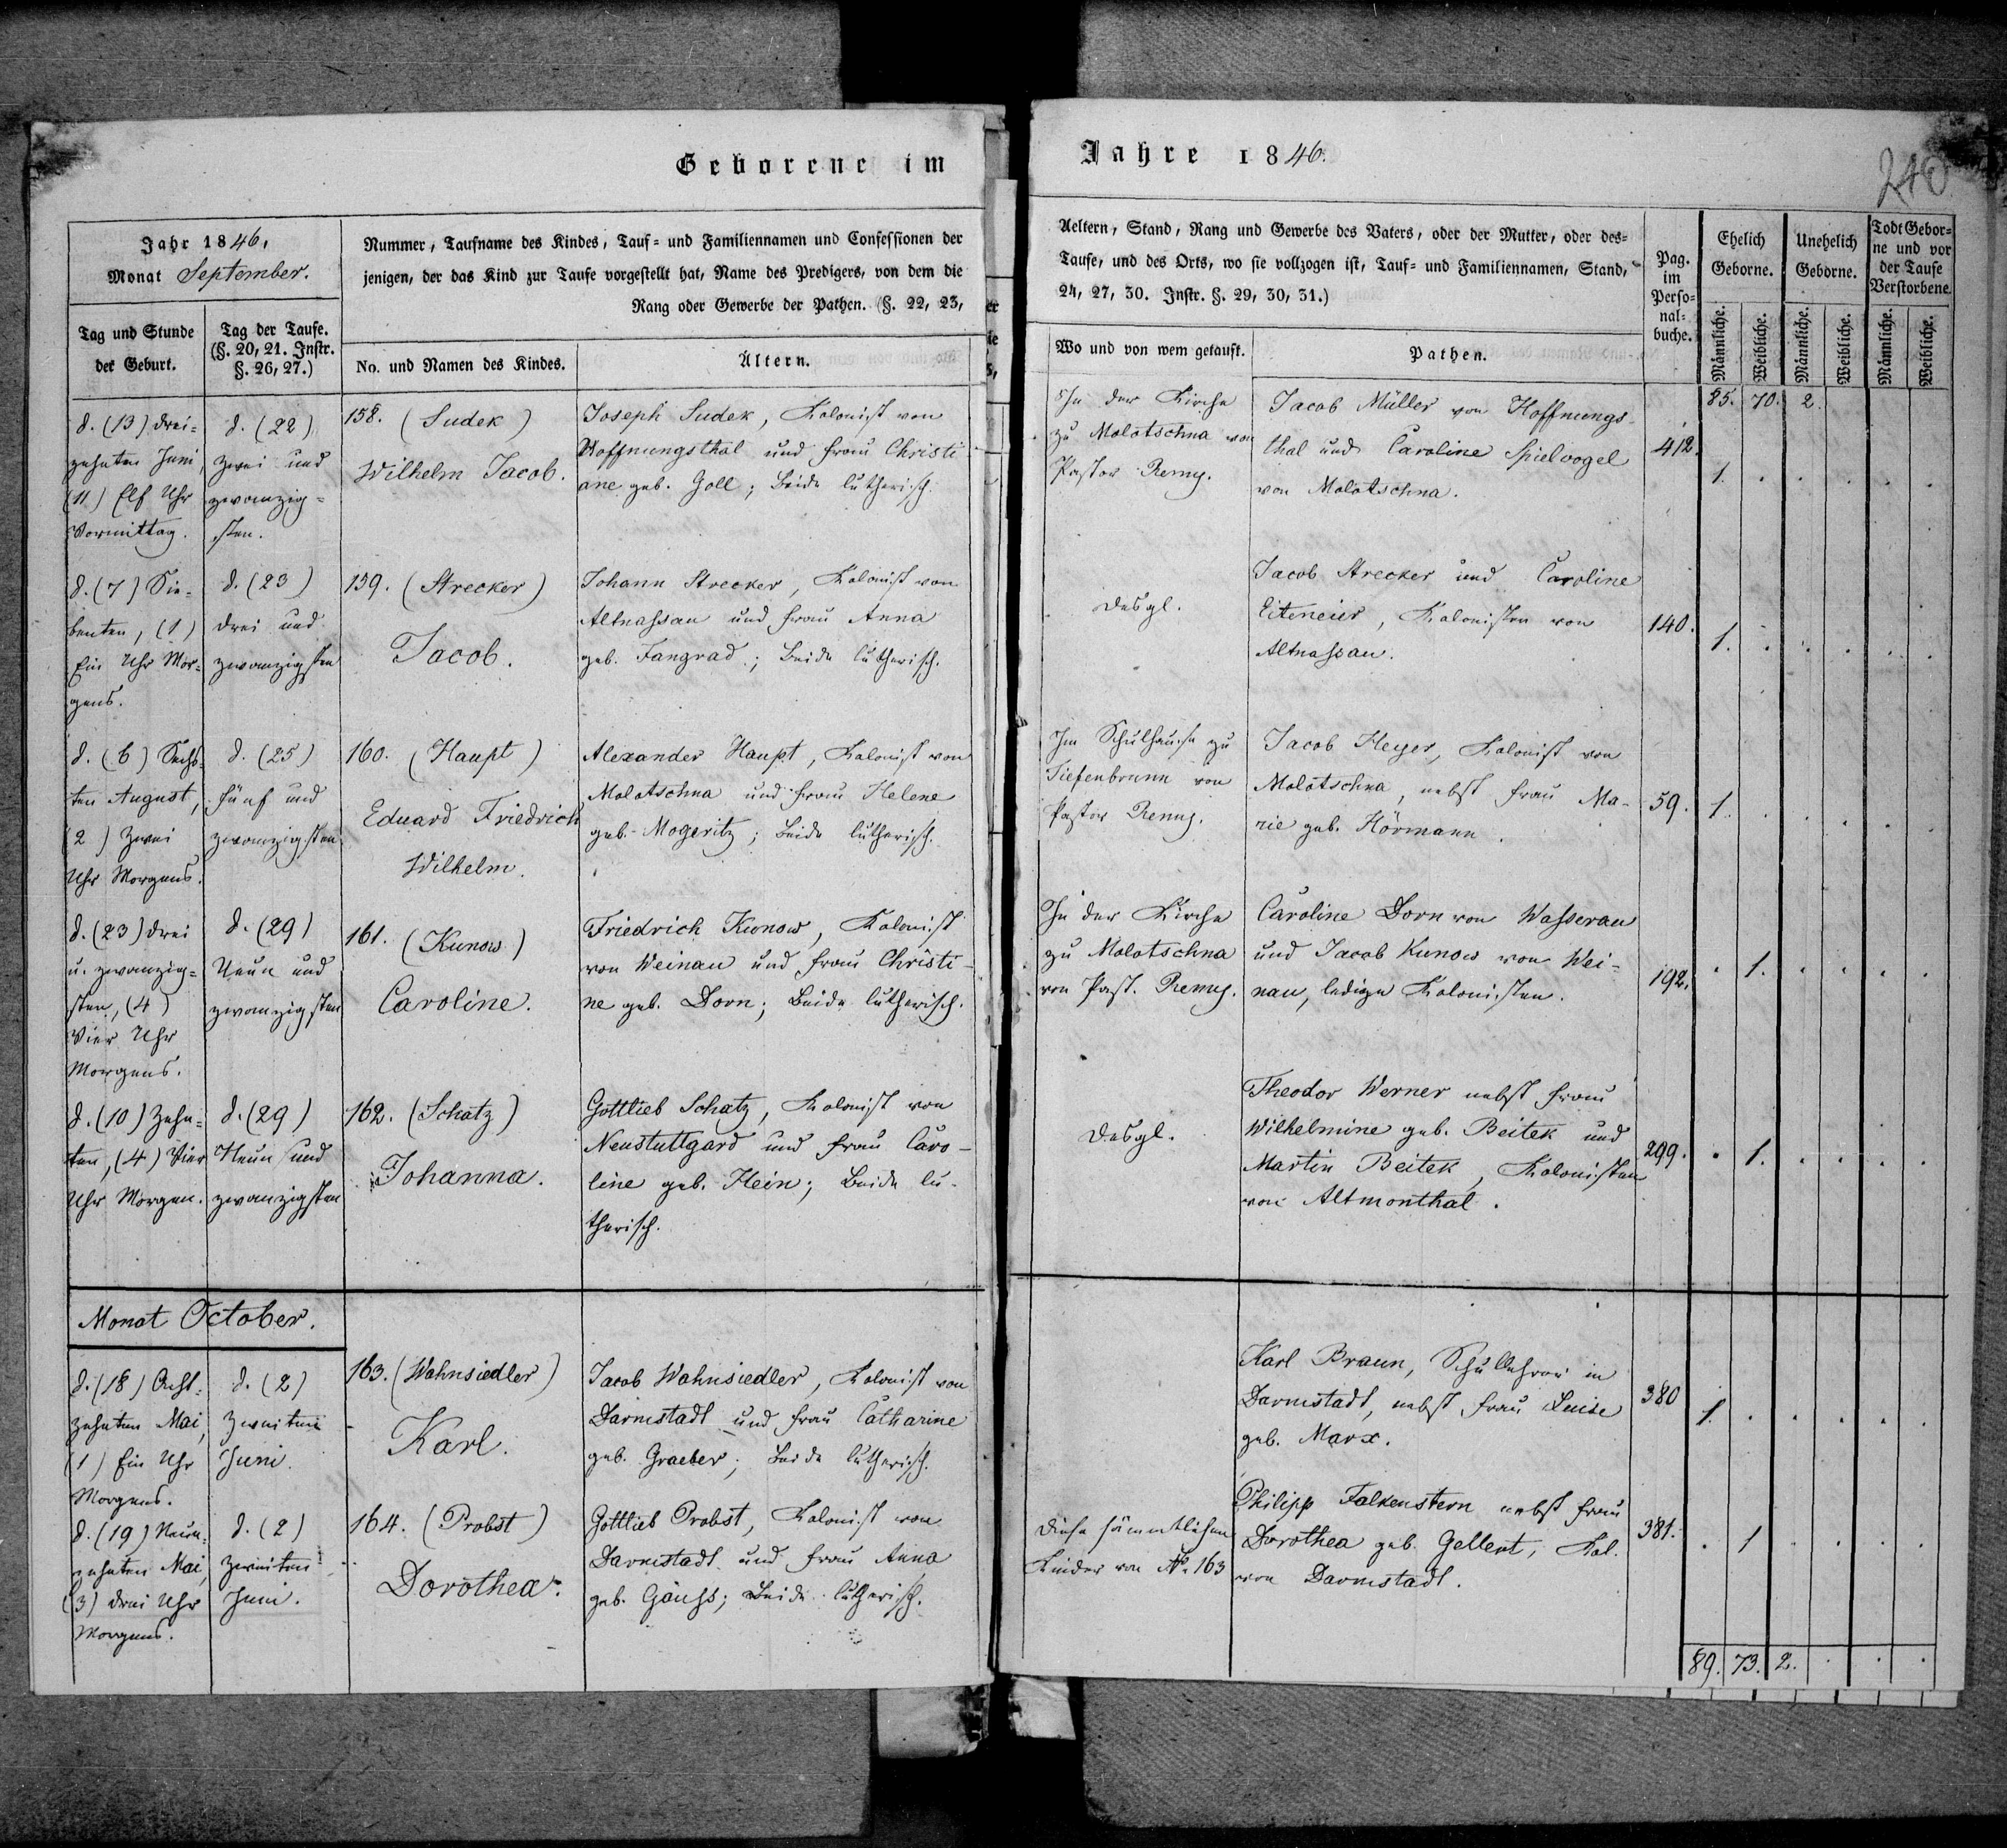 Geborene im
Jahr 1846.
Monat September.
Nummer, Taufname des Kindes, Tauf- und Familiennamen und Confessionen der
jenigen, der das Kind zur Taufe vorgestellt hat, Name des Predigers, von dem die
Rang oder Gewerbe der Pathen. (§. 22, 23,
Tag und Stunde
der Geburt.
Tag der Taufe.
(§. 20, 21. Instr.
§. 26, 27.)
No. und Namen des Kindes.
Ältern.
d. (13) drei-
zehnten Juni,
(11) Elf Uhr
Vormittag.
d. (22)
zwei und
zwanzig-
sten.
158. (Sudek)
Wilhelm Jacob.
Joseph Sudek, Kolonist von
Hoffnungsthal und Frau Christi
ane geb. Goll; beide lutherisch.
d. (7) Sie-
benten, (1)
Ein Uhr Mor-
gens.
d. (23)
drei und
zwanzigsten
159. (Strecker)
Jacob.
Johann Strecker, Kolonist von
Altnassau und Frau Anna
geb. Fangrad; beide lutherisch.
d. (6) Sechs-
ten August,
(2) zwei
Uhr Morgens.
d. (25)
fünf und
zwanzigsten
160. (Haupt)
Eduard Friedrich
Wilhelm.
Alexander Haupt, Kolonist von
Molotschna und Frau Helene
geb. Mogeritz; beide lutherisch.
d. (23) drei
u. zwanzig-
sten, (4)
Vier Uhr
Morgens.
d. (29)
Neun und
zwanzigsten
161. (Kunow)
Caroline.
Friedrich Kunow, Kolonist
von Weinau und Frau Christi-
ne geb. Dorn; beide lutherisch.
d. (10) Zehn-
ten, (4) Vier
Uhr Morgen.
d. (29)
Neun und
zwanzigsten
162. (Schatz)
Johanna.
Gottlieb Schatz, Kolonist von
Neustuttgard und Frau Caro-
line geb. Hein; beide lu-
therisch.
Monat October.
d. (18) Acht-
zehnten Mai,
(1) Ein Uhr
Morgens.
d. (2)
zweiten
Juni.
163. (Wahnsiedler)
Karl.
Jacob Wahnsiedler, Kolonist von
Darmstadt und Frau Catharine
geb. Graeber; beide lutherisch.
d. (19) Neun-
zehnten Mai,
(3) drei Uhr
Morgens.
d. (2)
zweiten
Juni.
164. (Probst)
Dorothea.
Gottlieb Probst, Kolonist von
Darmstadt und Frau Anna
geb. Gauss; beide lutherisch.
Jahre 1846.
240
Aeltern, Stand, Rang und Gewerbe des Vaters, oder der Mutter, oder des-
Taufe, und des Orts, wo sie vollzogen ist, Tauf- und Familiennamen, Stand,
24, 27, 30. Instr. §. 29, 30, 31.)
Wo und von wem getauft.
Pathen.
Pag.
im
Perso-
nal-
buche.
Ehelich
Geborne.
Unehelich
Geborne.
Todt Gebor-
ne und vor
der Taufe
Verstorbene.
Männliche.
Weibliche.
Männliche.
Weibliche.
Männliche.
Weibliche.
85. 70. 2.
In der Kirche
zu Molotschna von
Pastor Remy.
Jacob Müller von Hoffnungs-
thal und Caroline Spielvogel
von Molotschna.
412.
1.
desgl.
Jacob Strecker und Caroline
Eiteneier, Kolonisten von
Altnassau.
140.
1.
Im Schulhause zu
Tiefenbrunn von
Pastor Remy.
Jacob Heyer, Kolonist von
Molotschna, nebst Frau Ma-
rie geb. Hörmann.
59.
1.
In der Kirche
zu Molotschna
von Past. Remy.
Caroline Dorn von Wasserau
und Jacob Kunow von Wei-
nau, ledige Kolonisten.
192.
1.
desgl.
Theodor Werner nebst Frau
Wilhelmine geb. Beitek und
Martin Beitek, Kolonisten
von Altmonthal.
299.
1.
Karl Braun, Schullehrer in
Darmstadt, nebst Frau Luise
geb. Marx.
380
1.
Diese sämmtlichen
Kinder von No. 163
Philipp Falkenstern nebst Frau
Dorothea geb. Gellent, Kol.
von Darmstadt.
381.
1
89. 73. 2.